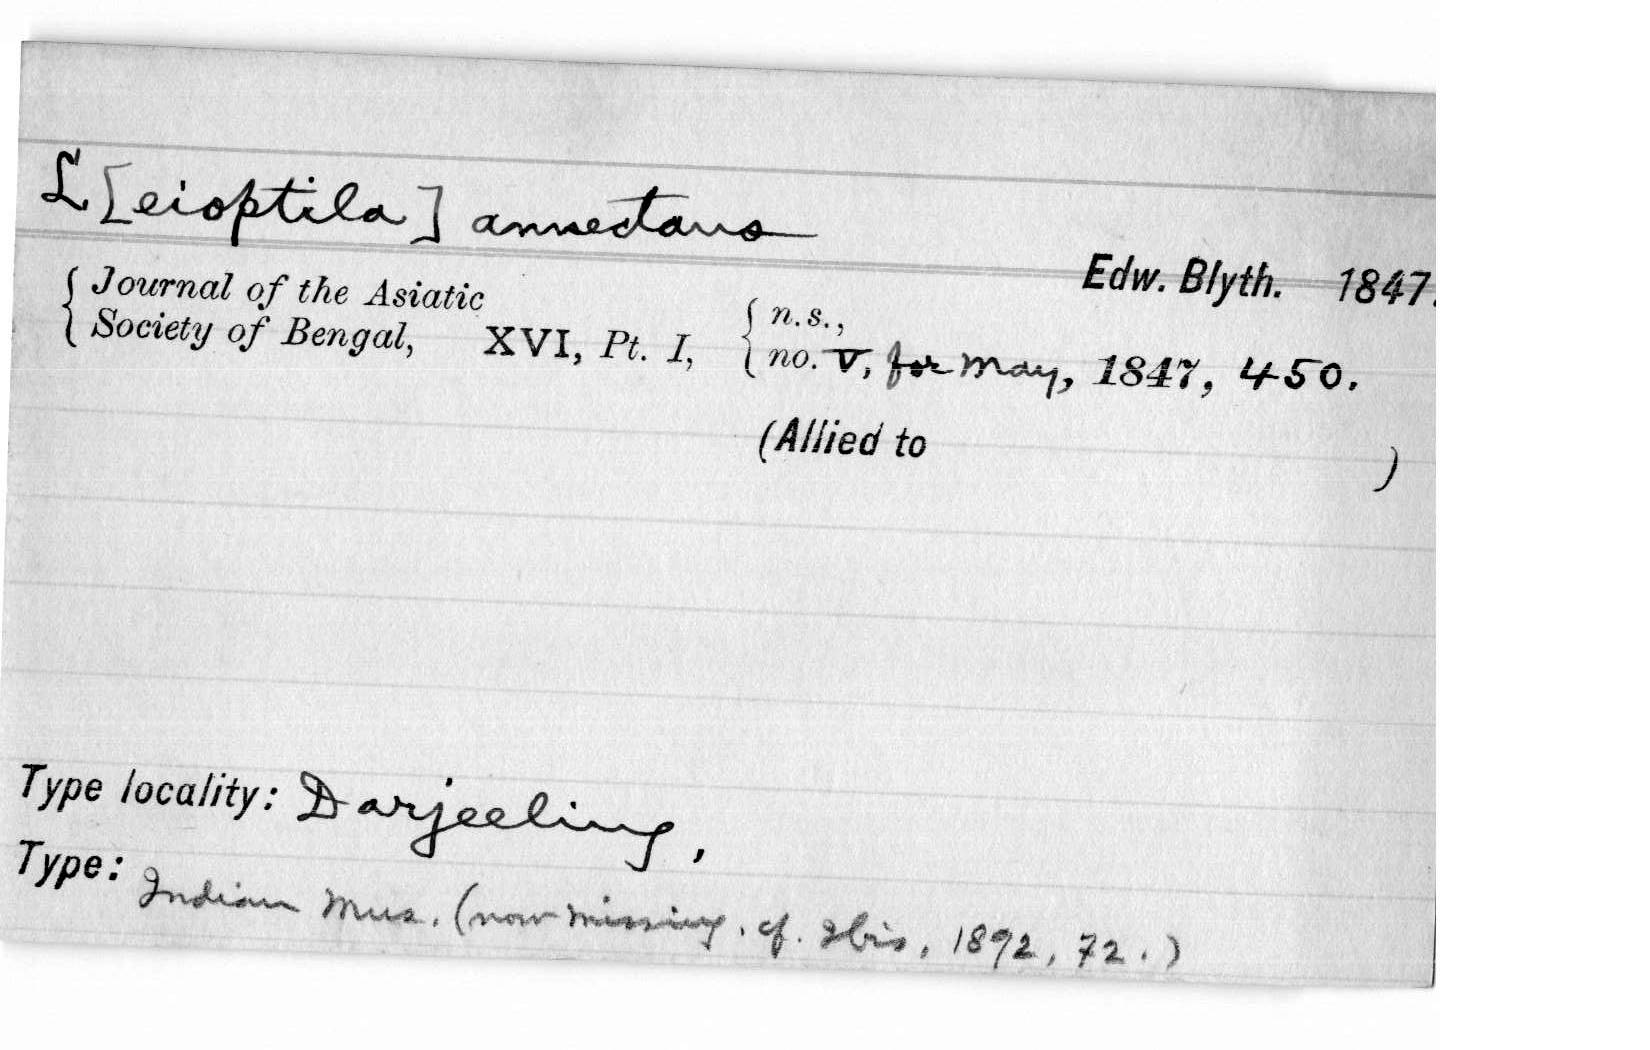 L[eioptila] annectans
Edw. Blyth. 1847.
{ Journal of the Asiatic
{ Society of Bengal, XVI, Pt. I, { n.s.,
{ no. V, for May, 1847, 450.
(Allied to )
Type locality: Darjeeling,
Type: Indian Mus. (now missing, cf. Ibis, 1892, 72.)